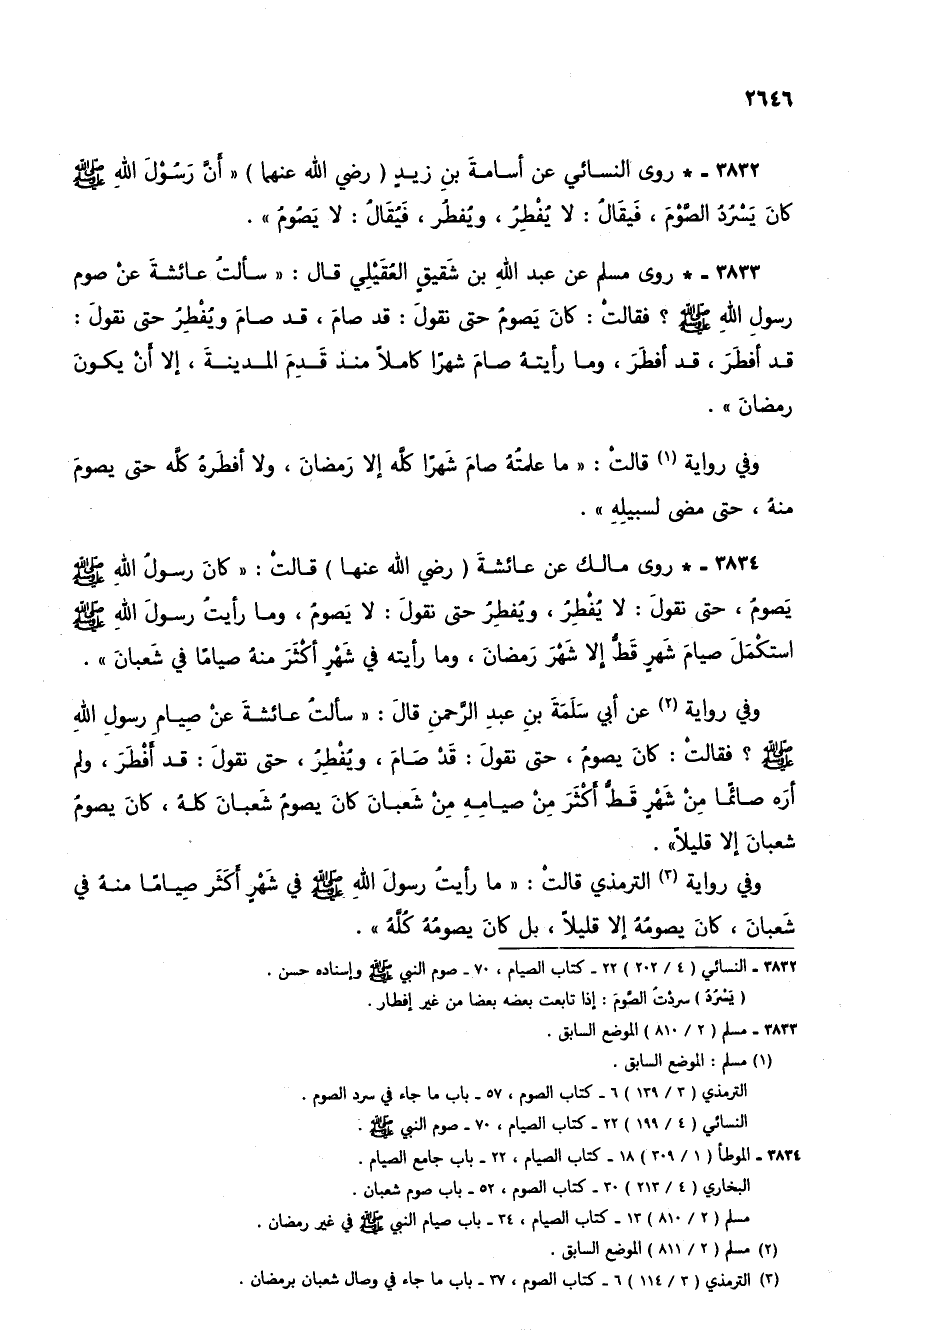 ٢٦٤٦
٣٨٣٢ ـ * روى النسائي عن أسامةَ بنِ زيدٍ ( رضي الله عنهما ) « أَنَّ رَسُوْلَ اللهِ ﷺ
كانَ يَسْرُدُ الصَّوْمَ ، فَيقالُ : لا يُفْطِرُ ، ويُفطر ، فَيُقَالُ : لا يَصُومُ » .
٣٨٣٣ ـ * روى مسلم عن عبد اللهِ بن شَقيقٍ العُقَيْلِي قال : « سألتُ عائشةَ عنْ صوم
رسولِ اللهِ ﷺ ؟ فقالتْ : كانَ يَصومُ حتى نقولَ : قد صامَ ، قد صامَ ويُفْطِرُ حتى نقولَ :
قد أفطَرَ ، قد أفطَرَ ، وما رأيتهُ صامَ شهرًا كاملاً منذ قَدِمَ المدينةَ ، إلا أَنْ يكونَ
رمضانَ » .
وفي رواية (١) قالتْ : « ما علمتُهُ صامَ شَهرًا كلَّه إلا رَمضانَ ، ولا أفطَرهُ كلَّه حتى يصومَ
منهُ ، حتى مضى لسبيلِهِ » .
٣٨٣٤ ـ * روى مالك عن عائشةَ ( رضي الله عنها ) قالتْ : « كانَ رسولُ اللهِ ﷺ
يَصومُ ، حتى نقولَ : لا يُفْطِرُ ، ويُفطِرُ حتى نقولَ : لا يَصومُ ، وما رأيتُ رسولَ اللهِ ﷺ
استكْمَلَ صيامَ شَهرٍ قَطُّ إلا شَهْرَ رَمضانَ ، وما رأيته في شَهْرٍ أكْثَرَ منهُ صيامًا في شَعبانَ » .
وفي رواية (٢) عن أبي سَلَمَةَ بنِ عبدِ الرَّحمنِ قالَ : « سألتُ عائشةَ عنْ صيامِ رسولِ اللهِ
ﷺ ؟ فقالتْ : كانَ يصومُ ، حتى نقولَ : قَدْ صَامَ ، ويُفْطِرُ ، حتى نقولَ : قد أَفْطَرَ ، ولم
أرَه صائمًا مِنْ شَهْرٍ قَطُّ أكْثَرَ مِنْ صيامِهِ مِنْ شَعبانَ كانَ يصومُ شَعبانَ كلهُ ، كانَ يصومُ
شعبانَ إلا قليلاً» .
وفي رواية (٣) الترمذي قالتْ : « ما رأيتُ رسولَ اللهِ ﷺ في شَهْرٍ أكَثَر صيامًا منهُ في
شَعبانَ ، كانَ يصومُهُ إلا قليلاً ، بل كانَ يصومُهُ كُلَّهُ » .
٣٨٣٢ ـ النسائي ( ٤ / ٢٠٢ ) ٢٢ ـ كتاب الصيام ، ٧٠ ـ صوم النبي ﷺ وإسناده حسن .
( يَسْرُدُ ) سردْتُ الصَّومَ : إذا تابعت بعضه بعضا من غير إفطار .
٣٨٣٣ ـ مسلم ( ٢ / ٨١٠ ) الموضع السابق .
(١) مسلم : الموضع السابق .
الترمذي ( ٣ / ١٣٩ ) ٦ ـ كتاب الصوم ، ٥٧ ـ باب ما جاء في سرد الصوم .
النسائي ( ٤ / ١٩٩ ) ٢٢ ـ كتاب الصيام ، ٧٠ ـ صوم النبي ﷺ .
٣٨٣٤ ـ الموطأ ( ١ / ٣٠٩ ) ١٨ ـ كتاب الصيام ، ٢٢ ـ باب جامع الصيام .
البخاري ( ٤ / ٢١٣ ) ٣٠ ـ كتاب الصوم ، ٥٢ ـ باب صوم شعبان .
مسلم ( ٢ / ٨١٠ ) ١٣ ـ كتاب الصيام ، ٣٤ ـ باب صيام النبي ﷺ في غير رمضان .
(٢) مسلم ( ٢ / ٨١١ ) الموضع السابق .
(٣) الترمذي ( ٣ / ١١٤ ) ٦ ـ كتاب الصوم ، ٣٧ ـ باب ما جاء في وصال شعبان برمضان .